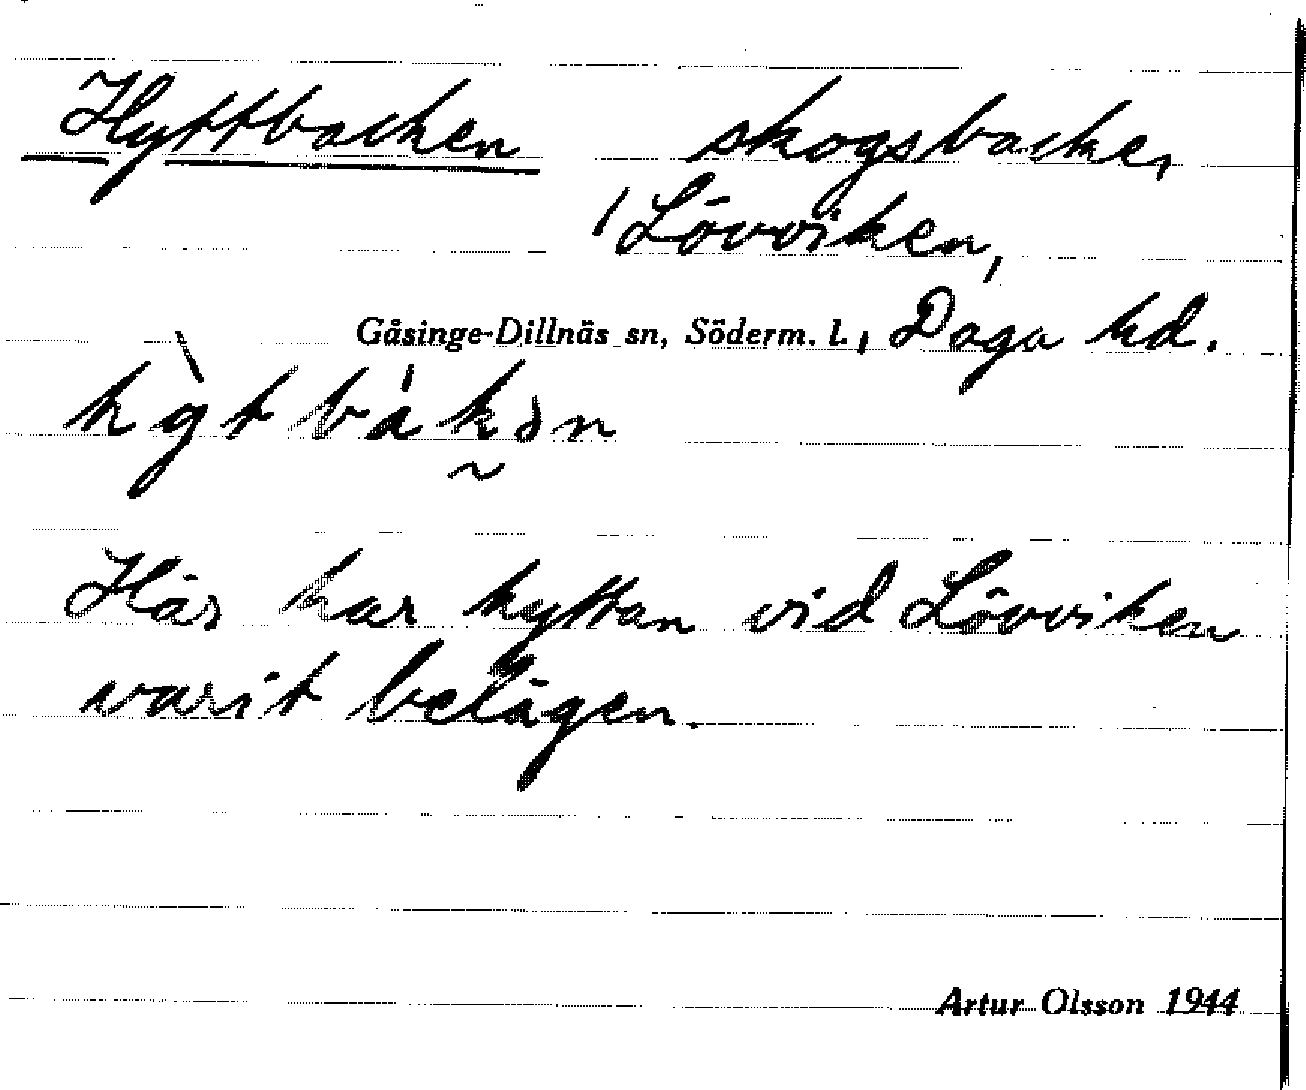 Hyttbacken skogsbacke,
/Lövviken,
Gåsinge-Dillnäs sn, Söderm. l., Daga hd.
hỳt bákən
Här har hyttan vid Lövviken
varit belägen.
Artur Olsson 1944